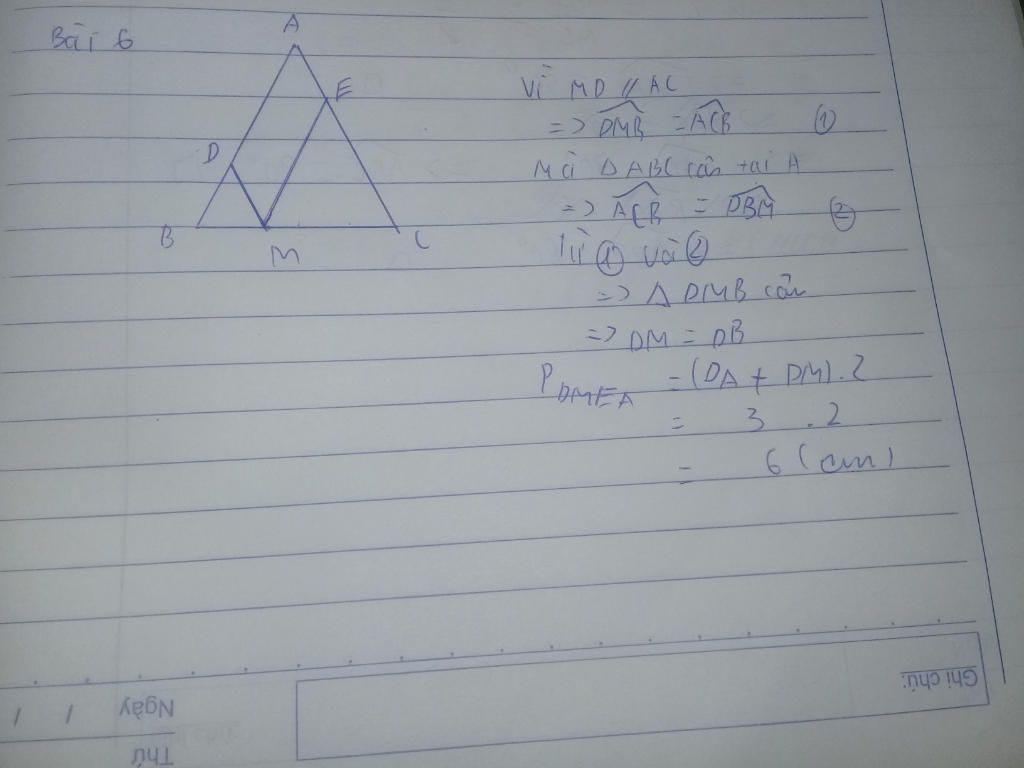 Bài 6
A
E
D
B
M
C
Vì MD // AC
=> DMB = ACB ①
Mà ΔABC cân tại A
=> ACB = DBM ②
Từ ① và ②
=> Δ DMB cân
=> DM = DB
P DMEA = (DA + DM).2
= 3 .2
= 6 (cm)
Ghi chú:
Ngày / /
Thứ